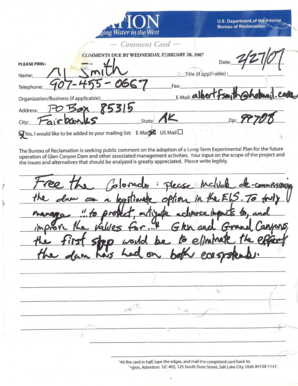 ATION
ging Water in the West
U.S. Department of the Interior
Bureau of Reclamation
— Comment Card —
COMMENTS DUE BY WEDNESDAY, FEBRUARY 28, 2007
PLEASE PRINT
Date: 2/27/07
Name: Al Smith
Title (if applicable):
Telephone: 907-455-0667
Fax:
Organization/Business (if applicable):
E-Mail: albertfsmith@hotmail.com
Address: PO Box 85315
City: Fairbanks State: AK Zip: 99708
Yes, I would be added to your mailing list: E-Mail US Mail
The Bureau of Reclamation is seeking public comment on the adoption of a Long-Term Experimental Plan for the future
operation of Glen Canyon Dam and other associated management activities. Your input on the scope of the project and
the issues and alternatives that should be analyzed is greatly appreciated. Please write legibly.
Free the Colorado: Please include de-commissioning
the dam as a legitimate option in the EIS. To truly
manage "to protect, mitigate adverse impacts to, and
improve the values for..." Glen and Grand Canyons,
the first step would be to eliminate the effect
the dam has had on both ecosystems.
Attention: UC-402, 125 South State Street, Salt Lake City, Utah 84138-1147.